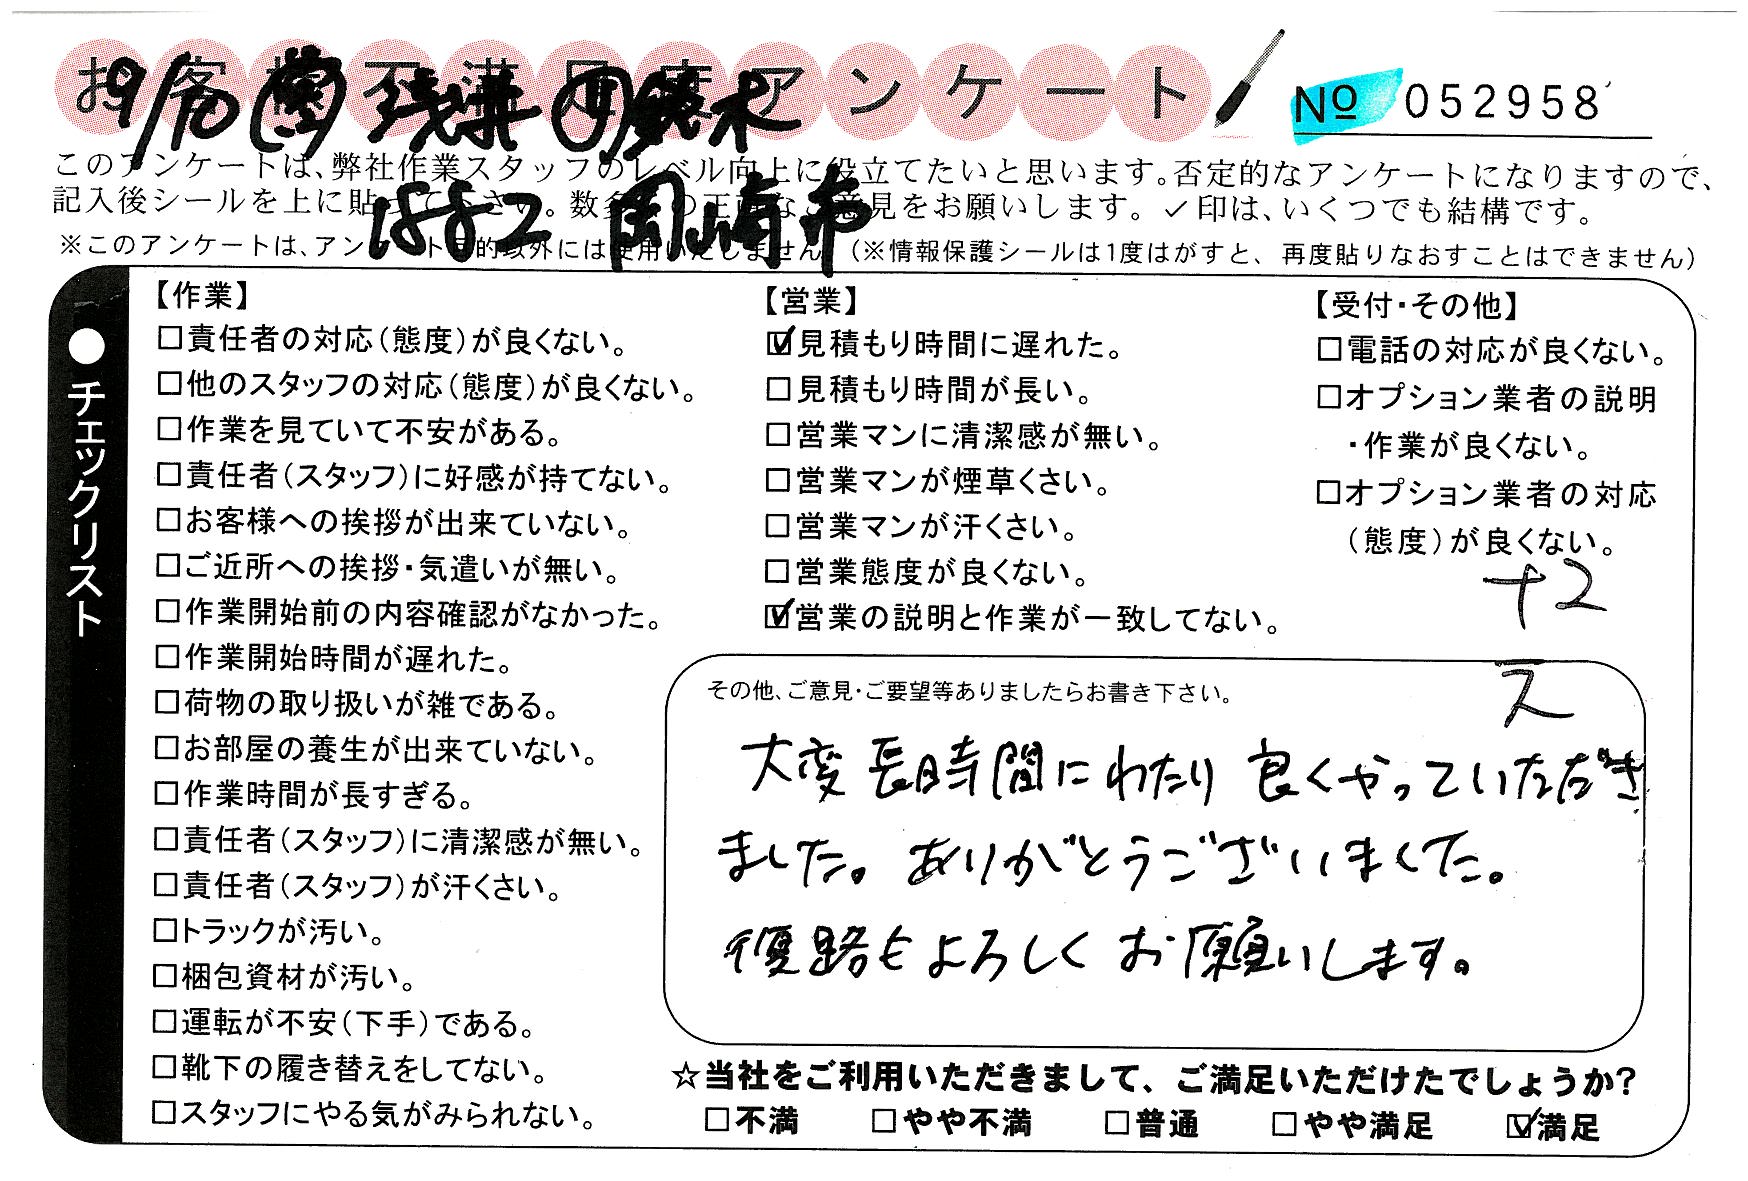 お客様不満足度アンケート
№ 052958
9/10 営 浅井 作 鈴木
このアンケートは、弊社作業スタッフのレベル向上に役立てたいと思います。否定的なアンケートになりますので、
記入後シールを上に貼って下さい。数多くの正直なご意見をお願いします。✓印は、いくつでも結構です。
1882 岡崎市
※このアンケートは、アンケート目的以外には使用いたしません。(※情報保護シールは1度はがすと、再度貼りなおすことはできません)
●チェックリスト
【作業】
□責任者の対応(態度)が良くない。
□他のスタッフの対応(態度)が良くない。
□作業を見ていて不安がある。
□責任者(スタッフ)に好感が持てない。
□お客様への挨拶が出来ていない。
□ご近所への挨拶・気遣いが無い。
□作業開始前の内容確認がなかった。
□作業開始時間が遅れた。
□荷物の取り扱いが雑である。
□お部屋の養生が出来ていない。
□作業時間が長すぎる。
□責任者(スタッフ)に清潔感が無い。
□責任者(スタッフ)が汗くさい。
□トラックが汚い。
□梱包資材が汚い。
□運転が不安(下手)である。
□靴下の履き替えをしてない。
□スタッフにやる気がみられない。
【営業】
☑見積もり時間に遅れた。
□見積もり時間が長い。
□営業マンに清潔感が無い。
□営業マンが煙草くさい。
□営業マンが汗くさい。
□営業態度が良くない。
☑営業の説明と作業が一致してない。
【受付・その他】
□電話の対応が良くない。
□オプション業者の説明
・作業が良くない。
□オプション業者の対応
(態度)が良くない。
+2
その他、ご意見・ご要望等ありましたらお書き下さい。
大変長時間にわたり良くやっていただき
ました。ありがとうございました。
復路もよろしくお願いします。
☆当社をご利用いただきまして、ご満足いただけたでしょうか?
□不満 □やや不満 □普通 □やや満足 ☑満足